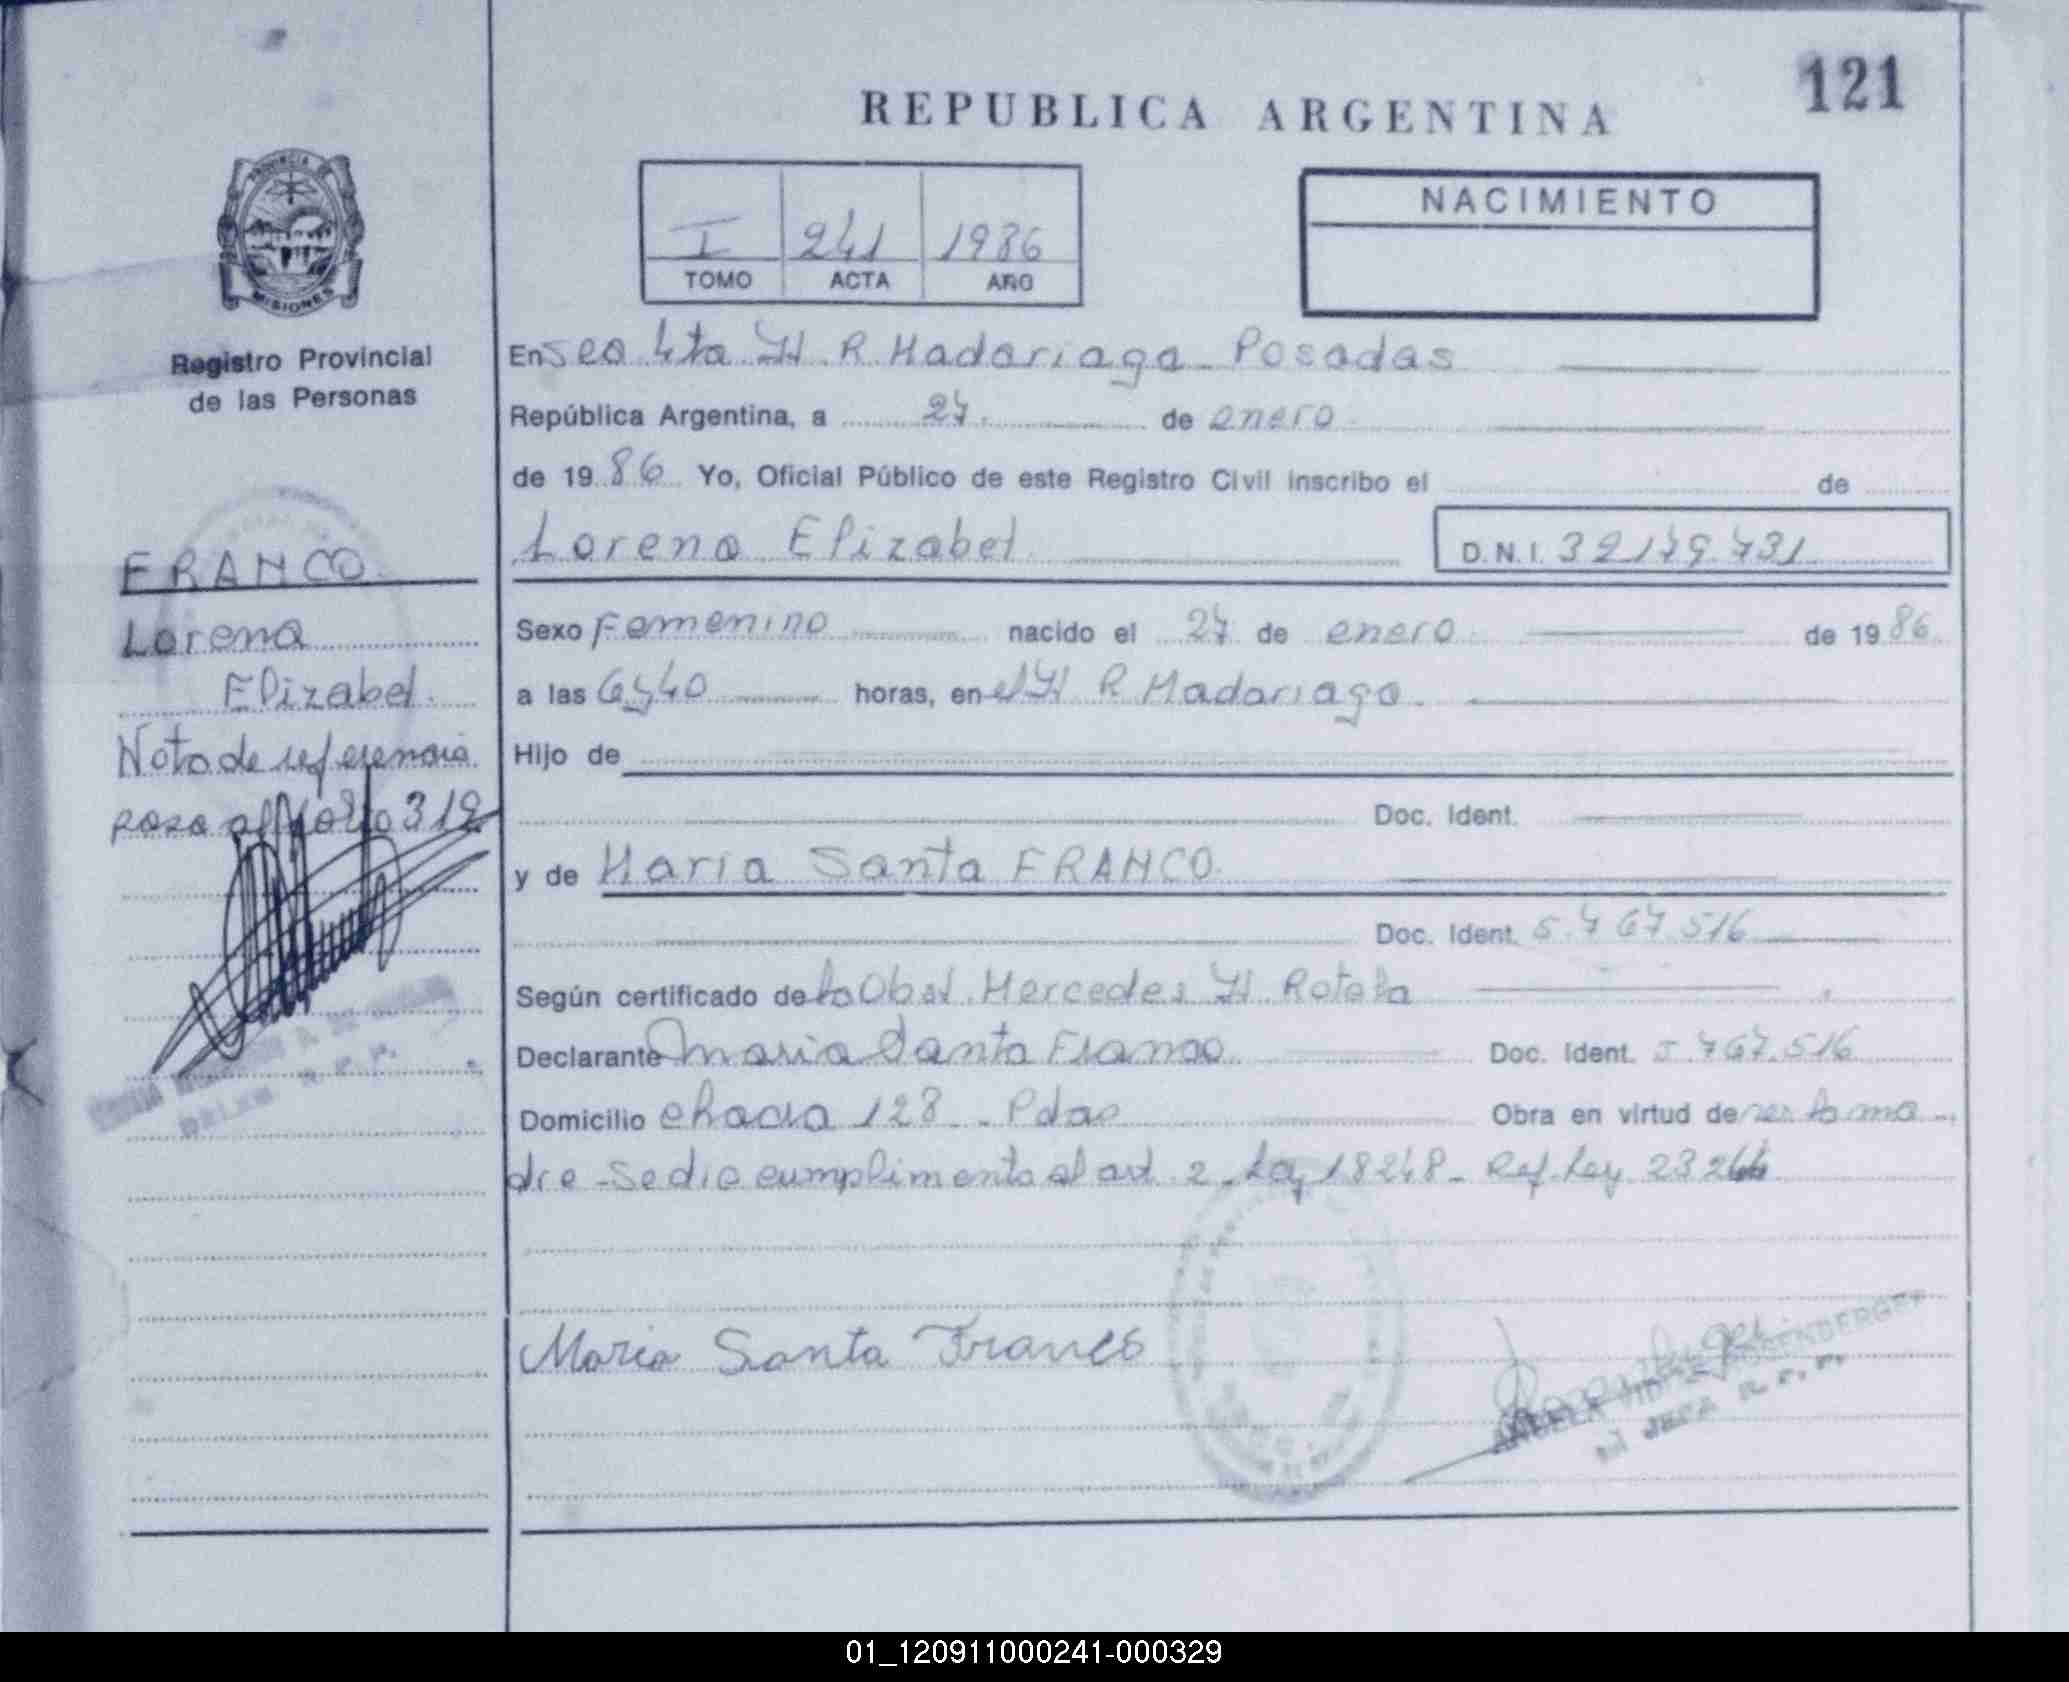 121
REPUBLICA ARGENTINA
PROVINCIA DE
MISIONES
I 241 1986
TOMO ACTA AÑO
NACIMIENTO
Registro Provincial
de las Personas
En Sec 4ta H. R Madariaga - Posadas
República Argentina, a 27. de enero
de 19 86 Yo, Oficial Público de este Registro Civil inscribo el de
Lorena Elizabet D.N.I. 32179.731
FRANCO
Lorena
Elizabet.
Nota de referencia
pasa al folio 312
Sexo Femenino nacido el 27 de enero de 19 86
a las 6,40 horas, en el H R Madariaga.
Hijo de
Doc. Ident.
y de Maria Santa FRANCO.
Doc. Ident. 5.767.516
Según certificado de la Obst. Mercedes H. Rotela
Declarante Maria Santa Franco Doc. Ident. 5.767.516
Domicilio chacra 128 - Pdas Obra en virtud de ser la ma
dre - Se dio cumplimento al art. 2 - Ley 18248 - Ref. Ley 23264
Maria Santa Franco
JEFA R.P.P.
01_120911000241-000329